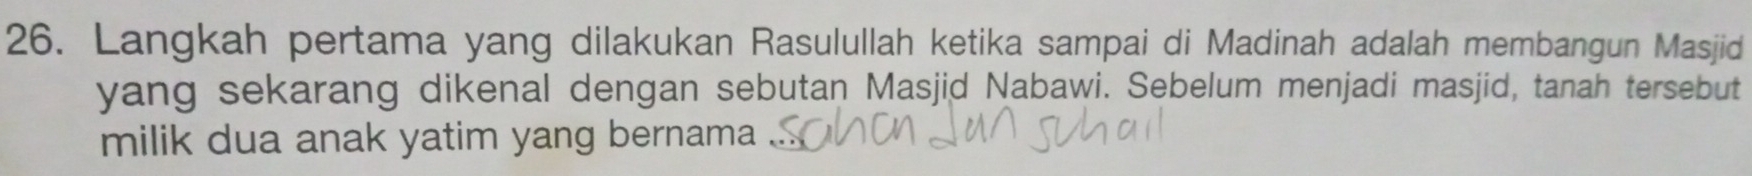 26. Langkah pertama yang dilakukan Rasulullah ketika sampai di Madinah adalah membangun Masjid
yang sekarang dikenal dengan sebutan Masjid Nabawi. Sebelum menjadi masjid, tanah tersebut
milik dua anak yatim yang bernama .... Sahan dan suhail